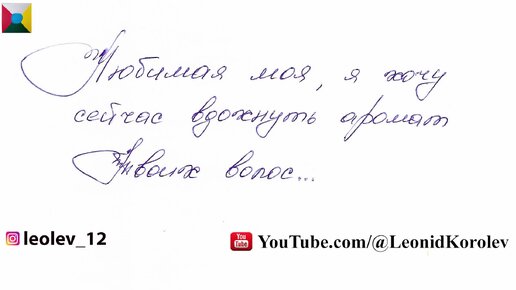 Любимая моя, я хочу
сейчас вдохнуть аромат
Твоих волос...
leolev_12
You Tube YouTube.com/@LeonidKorolev